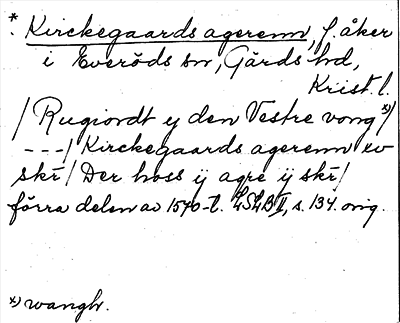 * Kirckegaards agerenn, f. åker
i Everöds sn, Gärds hd,
Krist. l.
/ Rugiordt y den Vestre vong x)/
---/ Kirckegaards agerenn xv
skr̄ / Der hoss ij agre ij skr̄ /
förra delen av 1540-t. LSLB II, s. 134. orig.
x) wangh.